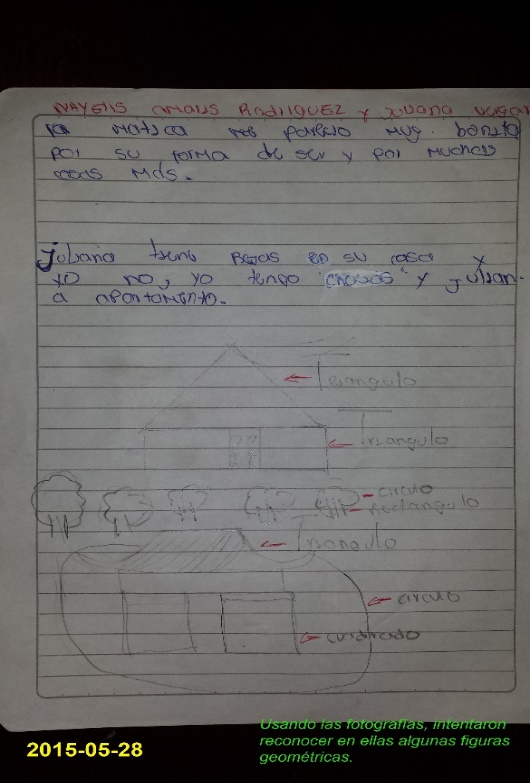 NAYELIS Rodriguez y Juliana
la me parecio muy bonita
por su forma de ser y por muchas
cosas mas.
juliana tiene Rejas en su casa y
yo no, yo tengo "chovas" y Julian-
a apartamento.
Triangulo
Triangulo
circulo
Rectangulo
Triangulo
circulo
cuadrado
Usando las fotografías, intentaron
reconocer en ellas algunas figuras
geométricas.
2015-05-28